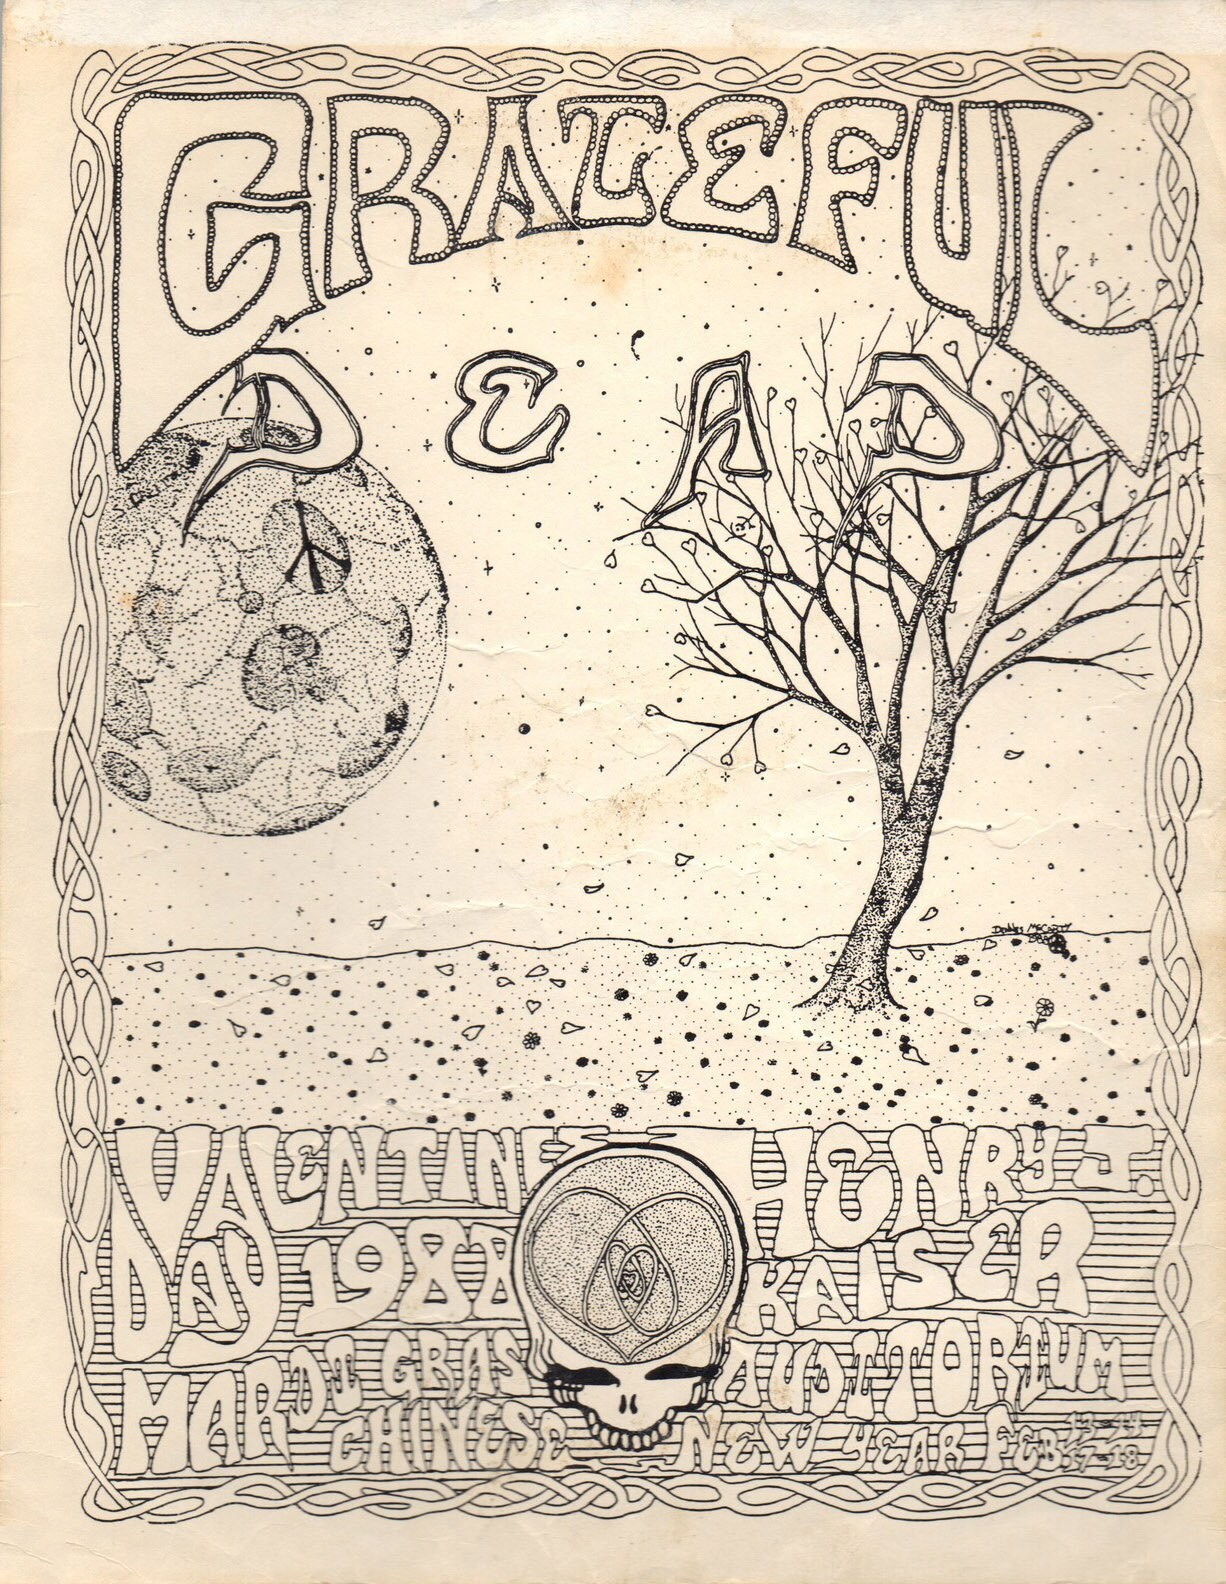 GRATEFUL
DEAD
VALENTINE
DAY 1988
MARDI GRAS
CHINESE
NEW YEAR
HENRY J.
KAISER
AUDITORIUM
FEB 13-14
17-18